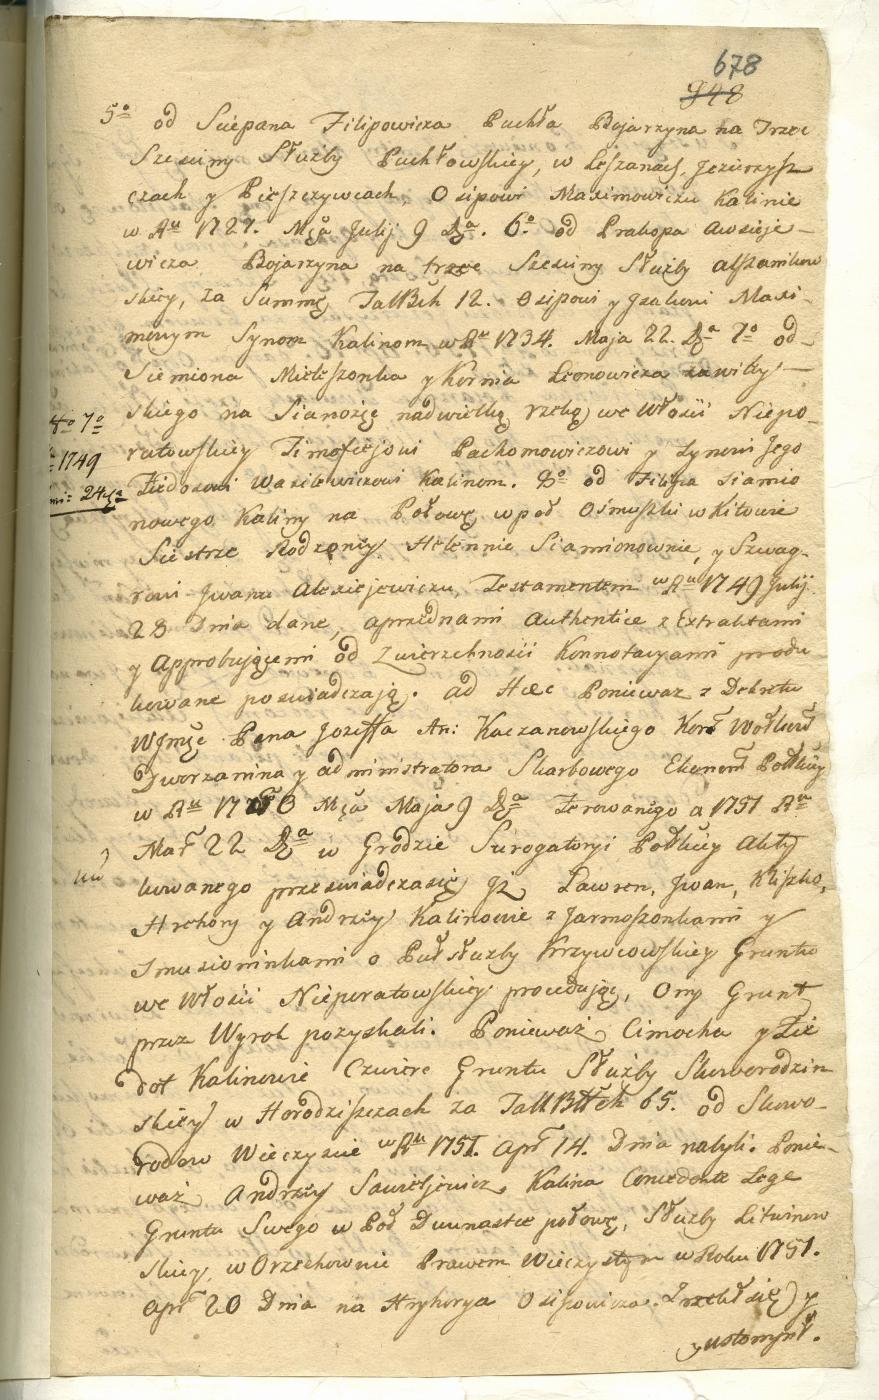 678
948
5º od Sciepana Filipowicza Puchła Bojarzyna na Trzee
Szesciny Słuzby Puchłowskiey, w Leszanach, Jezierzysz
czach y Pieszczywcach, Osipowi Maximowiczu Kalinie
w Ru 1727. Mca Julij 9 Da. 6º od Prakopa Awsieje-
wicza Bojarzyna na trzee Szesciny Służby
skiey, za Summę Tall Bch 12. Osipowi y Maxi-
mowym Synom Kalinom w Ru 1734. Maja 22. Da 7º od
Siemiona Mieleszonka y Kornia Leonowicza
skiego na Sianożęć nad wielką rzeką we Włości Niepo-
No 7º
ratowskiey Timofiejowi Pachomowiczowi y Synowi Jego
1749
Fiedosowi Wasilewiczowi Kalinom. 8º od Filipa Siamio
24
nowego Kaliny na Połowę wpoł Ośmuszki w Kitowie
Siestrze Rodzoney Helennie Siamionownie, y Szwag-
rowi Jwanu Alexiejewiczu, Testamentem w Ru 1749 Julij
28 Dnia dane, aprzednami Authentice z Extraktami
y Approbującemi od Zwierzchności Konnotacyami produ
kowane poswiadczają. Ad Hæc Poniewaz z Dekretu
Wjmsc Pana Jozeffa An: Kaczanowskiego
Dworzanina y administratora Skarbowego Ekonom Połłkiey
w Ru Mca Maja 9 Da Ferowanego a 1751 Ru
Mar 22 Da w Grodzie Surogatoryi Połłkiey Akty
kowanego przeswiadcza się Jż Lawren, Jwan, Kliszko,
Hrehory y Andrzey Kalinowie z Jarmoszonkami y
o Puł słuzby Krzywcowskiey Gruntu
we Włości Nieporatowskiey procedując, Ony Grunt
przez Wyrok pozyskali. Ponieważ Cimocha y Fie
dot Kalinowie Czwierc Gruntu Służby Skoworodzin
skiey w Horodziszczach za Tall 65. od Skowo-
rodow Wieczyscie w Ru 1751. Apr 14. Dnia nabyli. Ponie-
waż Andrzey Sawieljewicz Kalina Concedente Lege
Gruntu Swego w Poł Dwunastce połowę, Służby Litwinow
skiey, w Orzechownie Prawem Wieczystym w Roku 1751.
Apr 20 Dnia na Hryhorya Osipowicza. Zrzekł się y
ustompił.